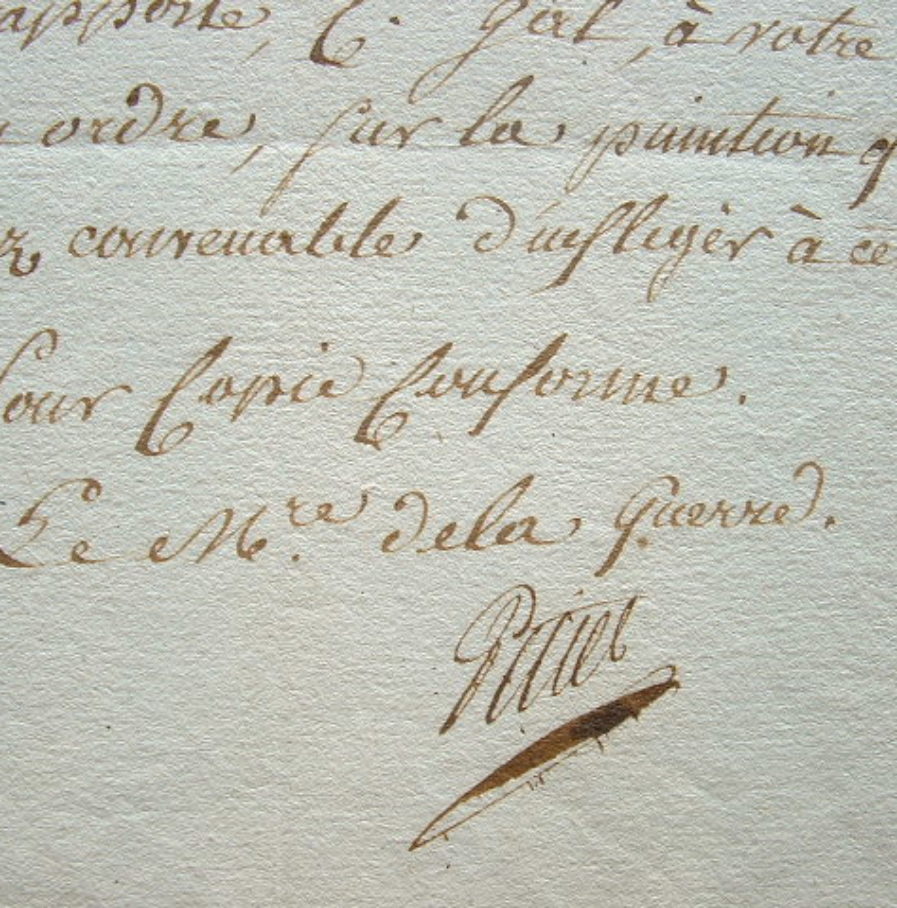 apporte, C. Gal, à votre
ordre, sur la punition q
z convenable d'infliger à ce
Pour Copie Conforme.
Le M.re dela Guerre.